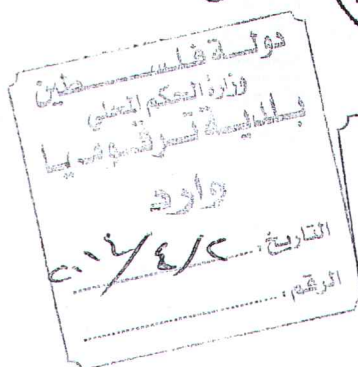 دولة فلسطين
وزارة الحكم المحلي
بلدية ترقوميا
وارد
التاريخ: ٢٠١٤/٤/٢
الرقم: